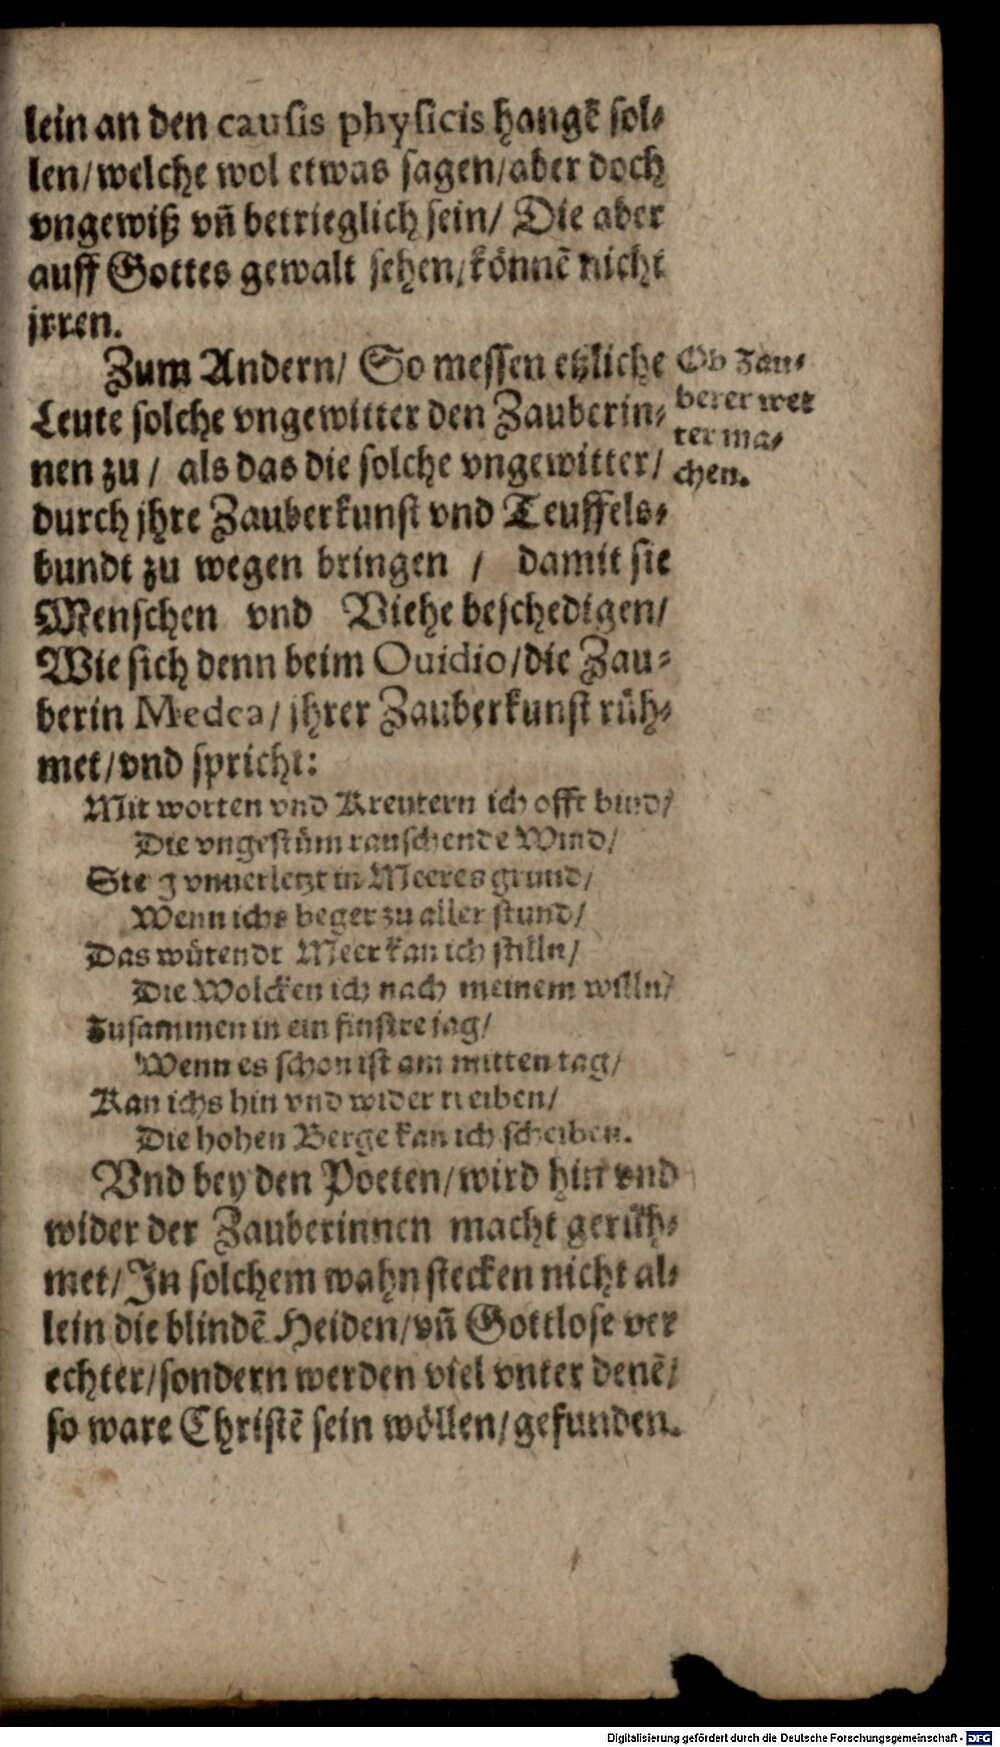 lein an den causis physicis hangẽ sol⸗
len/welche wol etwas sagen/aber doch
vngewiß vñ betrieglich sein/ Die aber
auff Gottes gewalt sehen/könnẽ nicht
jrren.
Zum Andern/ So messen etzliche
Leute solche vngewitter den Zauberin⸗
nen zu/ als das die solche vngewitter/
durch jhre Zauberkunst vnd Teuffels⸗
bundt zu wegen bringen / damit sie
Menschen vnd Viehe beschedigen/
Wie sich denn beim Ouidio/die Zau⸗
berin Medea/ jhrer Zauberkunst rüh⸗
met/vnd spricht:
Ob Zau⸗
berer wet
ter ma⸗
chen.
Mit worten vnd Kreutern ich offt bind/
Die vngestüm rauschende Wind/
vnuerletzt in Meeres grund/
Wenn ichs beger zu aller stund/
Das wütendt Meer kan ich stilln/
Die Wolcken ich nach meinem willn/
Zusammen in ein finstre jag/
Wenn es schon ist am mitten tag/
Kan ichs hin vnd wider treiben/
Die hohen Berge kan ich scheiben.
Vnd bey den Poeten/wird hin vnd
wider der Zauberinnen macht gerüh⸗
met/In solchem wahn stecken nicht al⸗
lein die blindẽ Heiden/vñ Gottlose ver
echter/sondern werden viel vnter denẽ/
so ware Christẽ sein wöllen/gefunden.
Digitalisierung gefördert durch die Deutsche Forschungsgemeinschaft - DFG